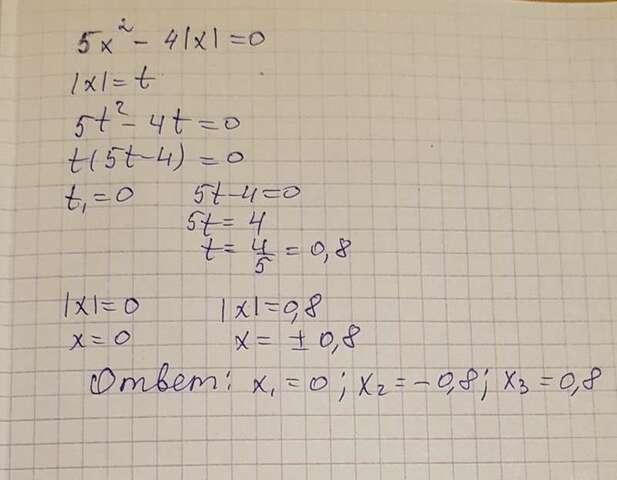 5x² - 4|x| = 0
|x| = t
5t² - 4t = 0
t(5t-4) = 0
t₁ = 0 5t-4=0
5t = 4
t = 4/5 = 0,8
|x| = 0 |x| = 0,8
x = 0 x = ± 0,8
Ответ: x₁ = 0; x₂ = -0,8; x₃ = 0,8